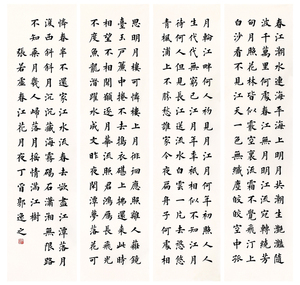 春江潮水連海平海上明月共潮生灩灩隨
波千萬里何處春江無月明江流宛轉繞芳
甸月照花林皆似霰空裏流霜不覺飛汀上
白沙看不見江天一色無纖塵皎皎空中孤
月輪江畔何人初見月江月何年初照人人
生代代無窮已江月年年祇相似不知江月
待何人但見長江送流水白雲一片去悠悠
青楓浦上不勝愁誰家今夜扁舟子何處相
思明月樓可憐樓上月徘徊應照離人妝鏡
臺玉戶簾中捲不去搗衣砧上拂還來此時
相望不相聞願逐月華流照君鴻雁長飛光
不度魚龍潛躍水成文昨夜閑潭夢落花可
憐春半不還家江水流春去欲盡江潭落月
復西斜斜月沉沉藏海霧碣石瀟湘無限路
不知乘月幾人歸落月搖情滿江樹
張若虛春江花月夜丁酉郭逸之